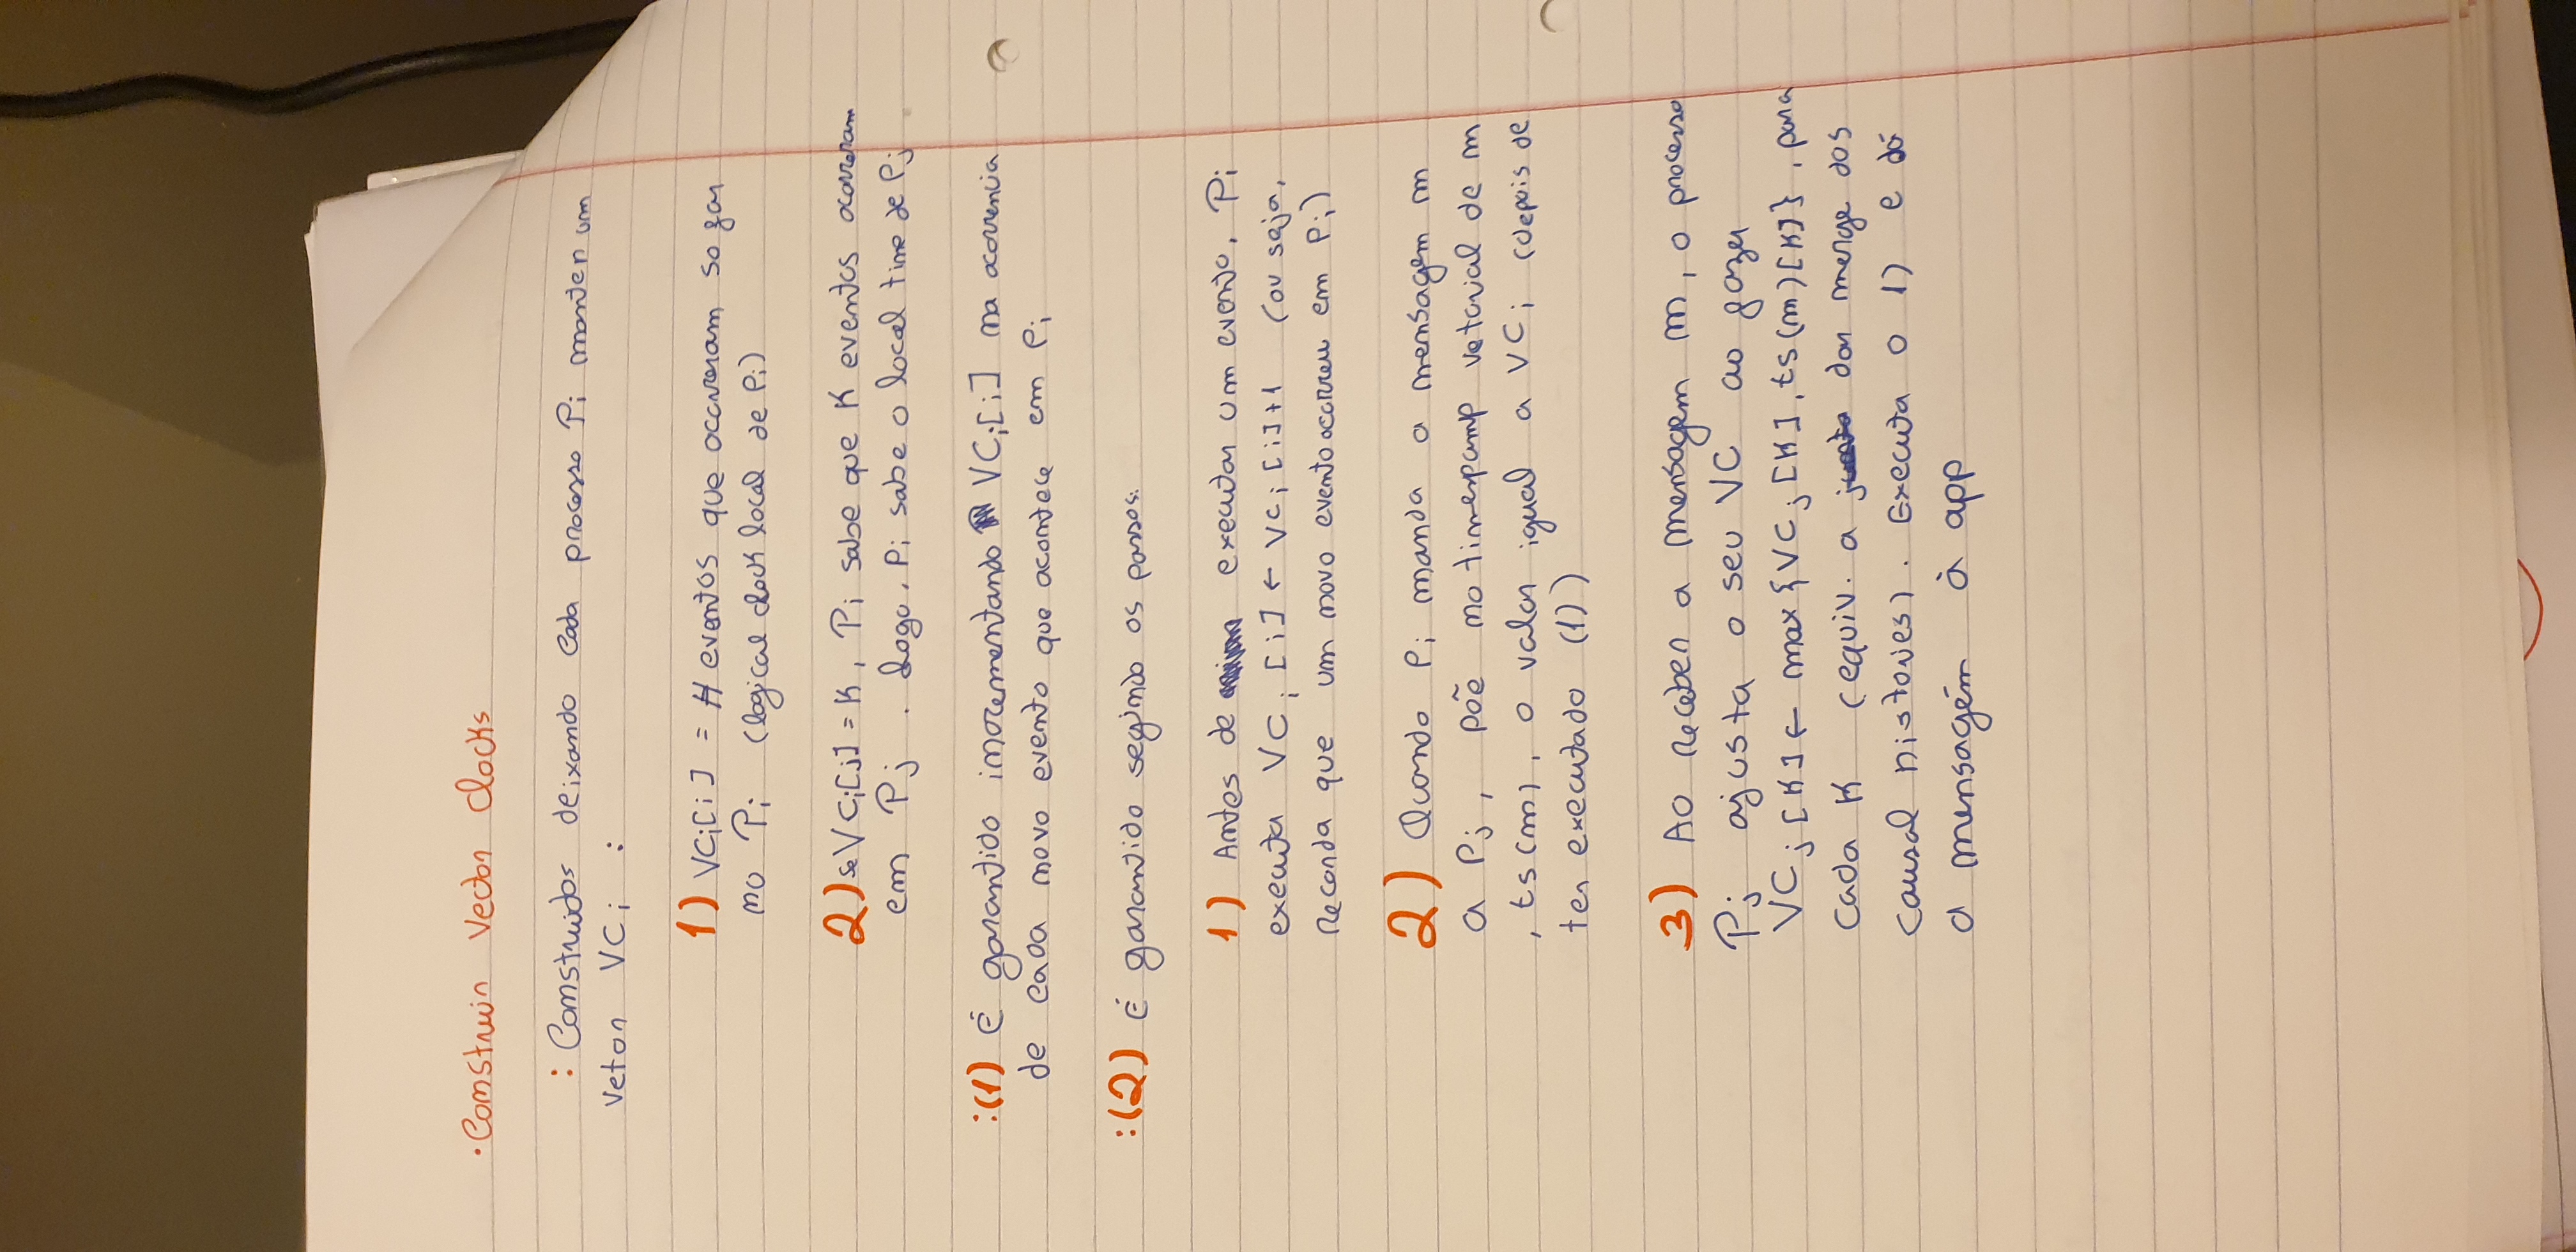 • Construir Vector Clocks
: Construidos deixando cada processo Pi manter um
vetor VCi :
1) VCi[i] = # eventos que occorreram so far
no Pi (logical clock local de Pi)
2) se VCi[j] = K, Pi sabe que K eventos ocorreram
em Pj . Logo, Pi sabe o local time de Pj
: (1) É garantido incrementando VCi[i] na ocorrencia
de cada novo evento que acontece em Pi
: (2) É garantido seguindo os passos:
1) Antes de executar um evento, Pi
executa VCi [i] ← VCi [i]+1 (ou seja,
recorda que um novo evento occorreu em Pi)
2) Quando Pi manda a mensagem m
a Pj , põe no timespamp vetorial de m
, ts(m), o valor igual a VCi (depois de
ter executado (1))
3) Ao receber a mensagem m, o processo
Pj ajusta o seu VC ao fazer
VCj [K] ← max {VCj [K], ts(m)[K]} , para
cada K (equiv. a dar merge dos
causal histories). Executa o 1) e dá
a mensagem à app